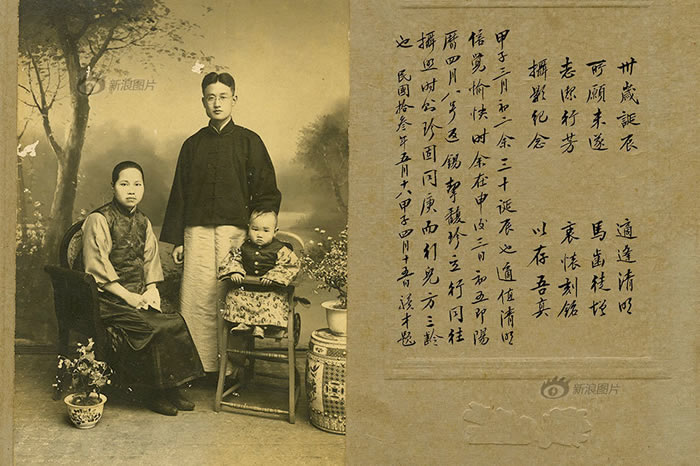 卅歲誕辰 適逢清明
所願未遂 馬齒徒增
志潔行芳 衷懷刻銘
攝影紀念 以存吾真
甲子三月初二余三十誕辰也適值清明
倍覺愉快時余在申後三日初五即陽
曆四月八号返錫挈馥珍立行同往
攝照時珍固同庚而引兒方三齡
也 民國拾叁年五月十八甲子四月十五日才題
新浪图片
新浪图片